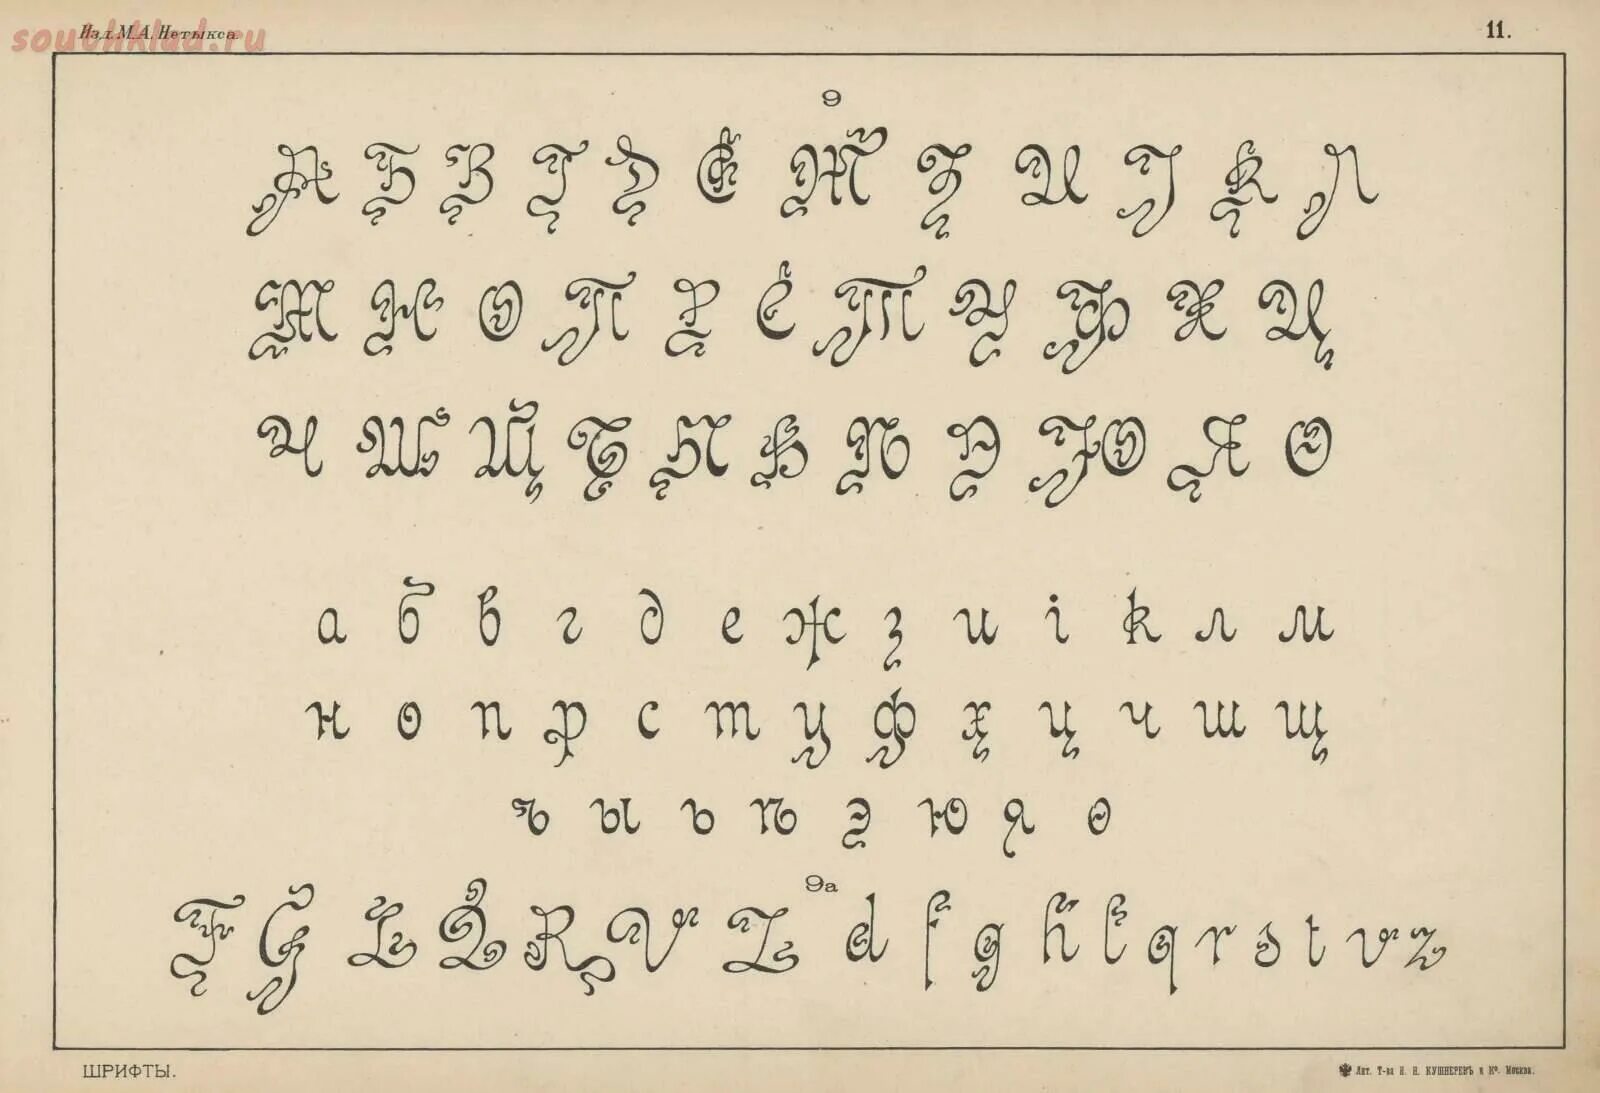 Изд. М. А. Нетыкса.
southklad.ru
11.
9
А Б В Г Д Е Ж З И І К Л
М Н О П Р С Т У Ф Х Ц
Ч Ш Щ Ъ Ы Ь Ѣ Э Ю Я Ѳ
а б в г д е ж з и і к л м
н о п р с т у ф х ц ч ш щ
ъ ы ь ѣ э ю я ѳ
9а
F G L Q R V Z d f g h l q r s t v z
ШРИФТЫ.
Лит. Т-ва И. Н. КУШНЕРЕВЪ и Кº. Москва.